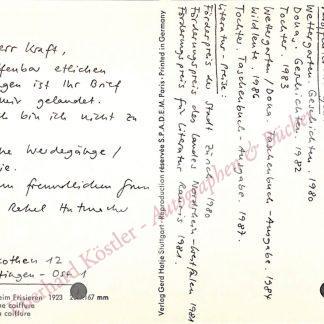 err Kraft,
fenbar etlichen
gen ist Ihr Brief
mir gelandet.
ch bin ich nicht zu
he Werdegänge/
ie.
em freundlichen
Rahel Hutmacher
kothen 12
Ost 1
beim Frisieren 1923
coiffure
Verlag Gerd Hatje Stuttgart · Reproduction réservée S.P.A.D.E.M. Paris · Printed in Germany
Wettergarten. Geschichten. 1980
Dona, Geschichten 1982
Tochter. 1983
Wettergarten / Dona. Taschenbuch-Ausgabe 1984
Wildleute. 1986
Tochter. Taschenbuch-Ausgabe. 1987.
Literatur-Preise:
Förderpreis der Stadt Zürich 1980
Förderungspreis des Landes Nordrhein-Westfalen 1981
Förderungspreis für Literatur Rauris 1981.
Eberhard Köstler - Autographen & Bücher